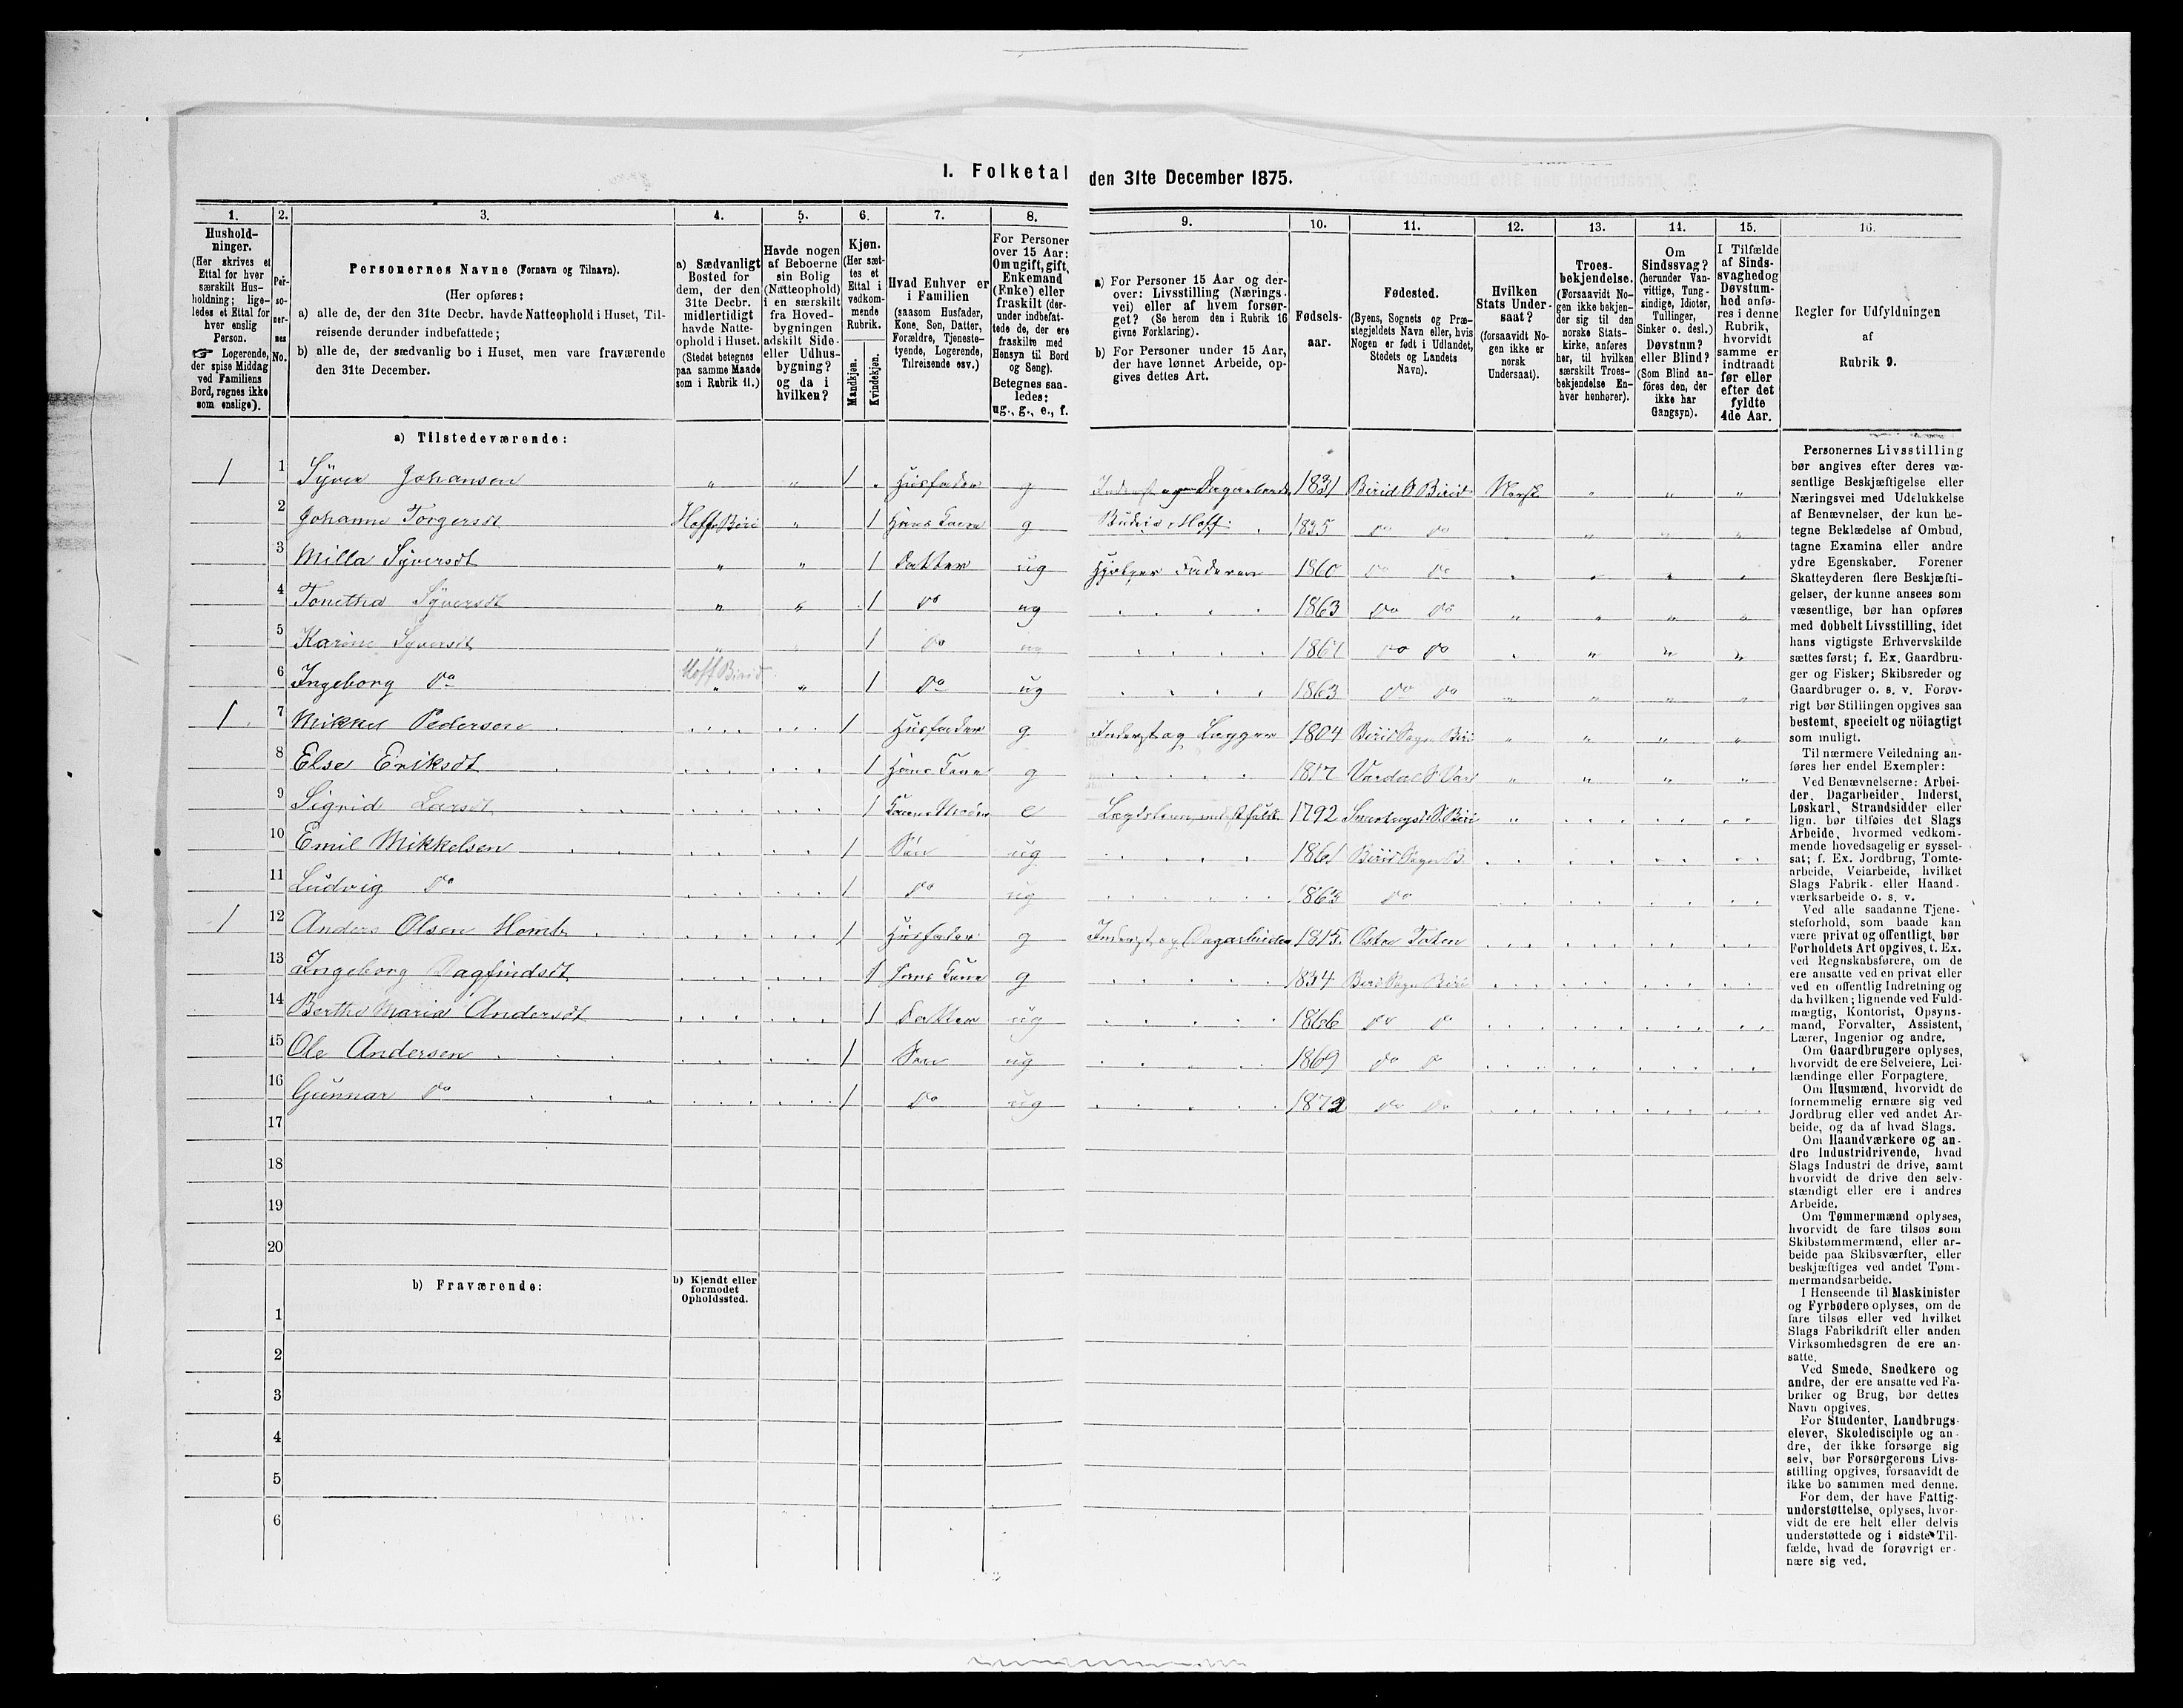 I. Folketal den 31te December 1875.
1. 2. 3. 4. 5. 6. 7. 8. 9. 10. 11. 12. 13. 14. 15. 16.
Hushold-
ninger.
(Her skrives et
Ettal for hver
særskilt Hus-
holdning; lige-
ledes et Ettal for
hver enslig
Person.
☞ Logerende,
der spise Middag
ved Familiens
Bord, regnes ikke
som enslige).
Per-
so-
ner-
nes
No.
Personernes Navne (Fornavn og Tilnavn).
(Her opføres:
a) alle de, der den 31te Decbr. havde Natteophold i Huset, Til-
reisende derunder indbefattede;
b) alle de, der sædvanlig bo i Huset, men vare fraværende
den 31te December.
a) Sædvanligt
Bosted for
dem, der den
31te Decbr.
midlertidigt
havde Natte-
ophold i Huset.
(Stedet betegnes
paa samme Maade
som i Rubrik 11.)
Havde nogen
af Beboerne
sin Bolig
(Natteophold)
i en særskilt
fra Hoved-
bygningen
adskilt Side-
eller Udhus-
bygning?
og da i
hvilken?
Kjøn.
(Her sæt-
tes et
Ettal i
vedkom-
mende
Rubrik.
Mandkjøn.
Kvindekjøn.
Hvad Enhver er
i Familien
(saasom Husfader,
Kone, Søn, Datter,
Forældre, Tjeneste-
tyende, Logerende,
Tilreisende osv.)
For Personer
over 15 Aar:
Om ugift, gift,
Enkemand
(Enke) eller
fraskilt (der-
under indbefat-
tede de, der ere
fraskilte med
Hensyn til Bord
og Seng).
Betegnes saa-
ledes:
ug., g., e., f.
a) For Personer 15 Aar og der-
over: Livsstilling (Nærings-
vei) eller af hvem forsør-
get? (Se herom den i Rubrik 16
givne Forklaring).
b) For Personer under 15 Aar,
der have lønnet Arbeide, op-
gives dettes Art.
Fødsels-
aar.
Fødested.
(Byens, Sognets og Præ-
stegjeldets Navn eller, hvis
Nogen er født i Udlandet,
Stedets og Landets
Navn).
Hvilken
Stats Under-
saat?
(forsaavidt No-
gen ikke er
norsk
Undersaat).
Troes-
bekjendelse.
(Forsaavidt No-
gen ikke bekjen-
der sig til den
norske Stats-
kirke, anføres
her, til hvilken
særskilt Troes-
bekjendelse En-
hver henhører).
Om
Sindssvag?
(herunder Van-
vittige, Tung-
sindige, Idioter,
Tullinger,
Sinker o. desl.)
Døvstum?
eller Blind?
(Som Blind an-
föres den, der
ikke har
Gangsyn).
I Tilfælde
af Sinds-
svaghed og
Døvstum-
hed anfø-
res i denne
Rubrik,
hvorvidt
samme er
indtraadt
før eller
efter det
fyldte
4de Aar.
Regler for Udfyldningen
af
Rubrik 9.
a) Tilstedeværende:
1 1 Syver Johansen " " 1 Husfader g 1831 Birid S Birid Norsk " " "
2 Johanne Torgersdt Hoff Biri " 1 Hans Kone g 1835 do do " " "
3 Milla Syversdt " " 1 Datter ug Hjelper Faderen 1860 do do " " " "
4 Tonetha Syversdt " " 1 do ug 1863 do do " " " "
5 Karine Syversdt " 1 do ug 1867 do do " " " "
6 Ingeborg do Hoff Birid " " 1 do ug 1863 do do " " " "
1 7 Mikkel Pedersen 1 Husfader g Inderst og Lægger 1804 Birid Sogn Biri " " " "
8 Else Eriksdt 1 Hans Kone g 1817 Vardal S Var " " " "
9 Sigrid Larsdt 1 e 1792 "
10 Emil Mikkelsen 1 Søn ug 1861 Birid Sogn B.
11 Ludvig do 1 do ug 1863 do
1 12 Anders Olsen 1 Husfader g Inderst og Dagarbeider 1815 Østre Toten
13 Ingeborg Dagfindsdt 1 Hans Kone g 1834 Biri Sogn Biri
14 Berthe Maria Andersdt 1 Datter ug 1866 do do
15 Ole Andersen 1 Søn ug 1869 do do
16 Gunnar do 1 do ug 1872 do do
17
18
19
20
b) Fraværende:
b) Kjendt eller
formodet
Opholdssted.
1
2
3
4
5
6
Personernes Livsstilling
bør angives efter deres væ-
sentlige Beskjæftigelse eller
Næringsvei med Udelukkelse
af Benævnelser, der kun be-
tegne Beklædelse af Ombud,
tagne Examina eller andre
ydre Egenskaber. Forener
Skatteyderen flere Beskjæfti-
gelser, der kunne ansees som
væsentlige, bør han opføres
med dobbelt Livsstilling, idet
hans vigtigste Erhvervskilde
sættes først; f. Ex. Gaardbru-
ger og Fisker; Skibsreder og
Gaardbruger o. s. v. Forøv-
rigt bør Stillingen opgives saa
bestemt, specielt og nöiagtigt
som muligt.
Til nærmere Veiledning an-
føres her endel Exempler:
Ved Benævnelserne: Arbei-
der, Dagarbeider, Inderst,
Løskarl, Strandsidder eller
lign. bør tilføies det Slags
Arbeide, hvormed vedkom-
mende hovedsagelig er syssel-
sat; f. Ex. Jordbrug, Tomte-
arbeide, Veiarbeide, hvilket
Slags Fabrik- eller Haand-
værksarbeide o. s. v.
Ved alle saadanne Tjene-
steforhold, som baade kan
være privat og offentligt, bør
Forholdets Art opgives, t. Ex.
ved Regnskabsførere, om de
ere ansatte ved en privat eller
ved en offentlig Indretning og
da hvilken; lignende ved Fuld-
mægtig, Kontorist, Opsyns-
mand, Forvalter, Assistent,
Lærer, Ingeniør og andre.
Om Gaardbrugere oplyses,
hvorvidt de ere Selveiere, Lei-
lændinge eller Forpagtere.
Om Husmænd, hvorvidt de
fornemmelig ernære sig ved
Jordbrug eller ved andet Ar-
beide, og da af hvad Slags.
Om Haandværkere og an-
dre Industridrivende, hvad
Slags Industri de drive, samt
hvorvidt de drive den selv-
stændigt eller ere i andres
Arbeide.
Om Tømmermænd oplyses,
hvorvidt de fare tilsøs som
Skibstømmermænd, eller ar-
beide paa Skibsværfter, eller
beskjæftiges ved andet Tøm-
mermandsarbeide.
I Henseende til Maskinister
og Fyrbødere oplyses, om de
fare tilsøs eller ved hvilket
Slags Fabrikdrift eller anden
Virksomhedsgren de ere an-
satte.
Ved Smede, Snedkere og
andre, der ere ansatte ved Fa-
briker og Brug, bør dettes
Navn opgives.
For Studenter, Landbrugs-
elever, Skoledisciple og an-
dre, der ikke forsørge sig
selv, bør Forsørgerens Livs-
stilling opgives, forsaavidt de
ikke bo sammen med denne.
For dem, der have Fattig-
understøttelse, oplyses, hvor-
vidt de ere helt eller delvis
understøttede og i sidste Til-
fælde, hvad de forøvrigt er-
nære sig ved.